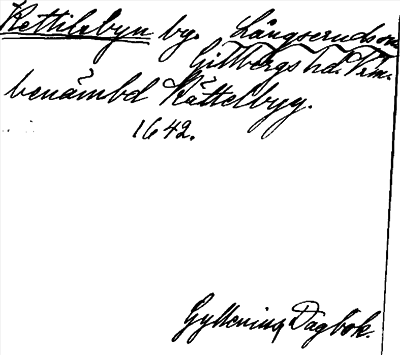 Kettilsbyn by. Långserud sn
Gillbergs hd. Vrm.
benämbd Kättelbyg.
1642.
Gyllenius Dagbok.